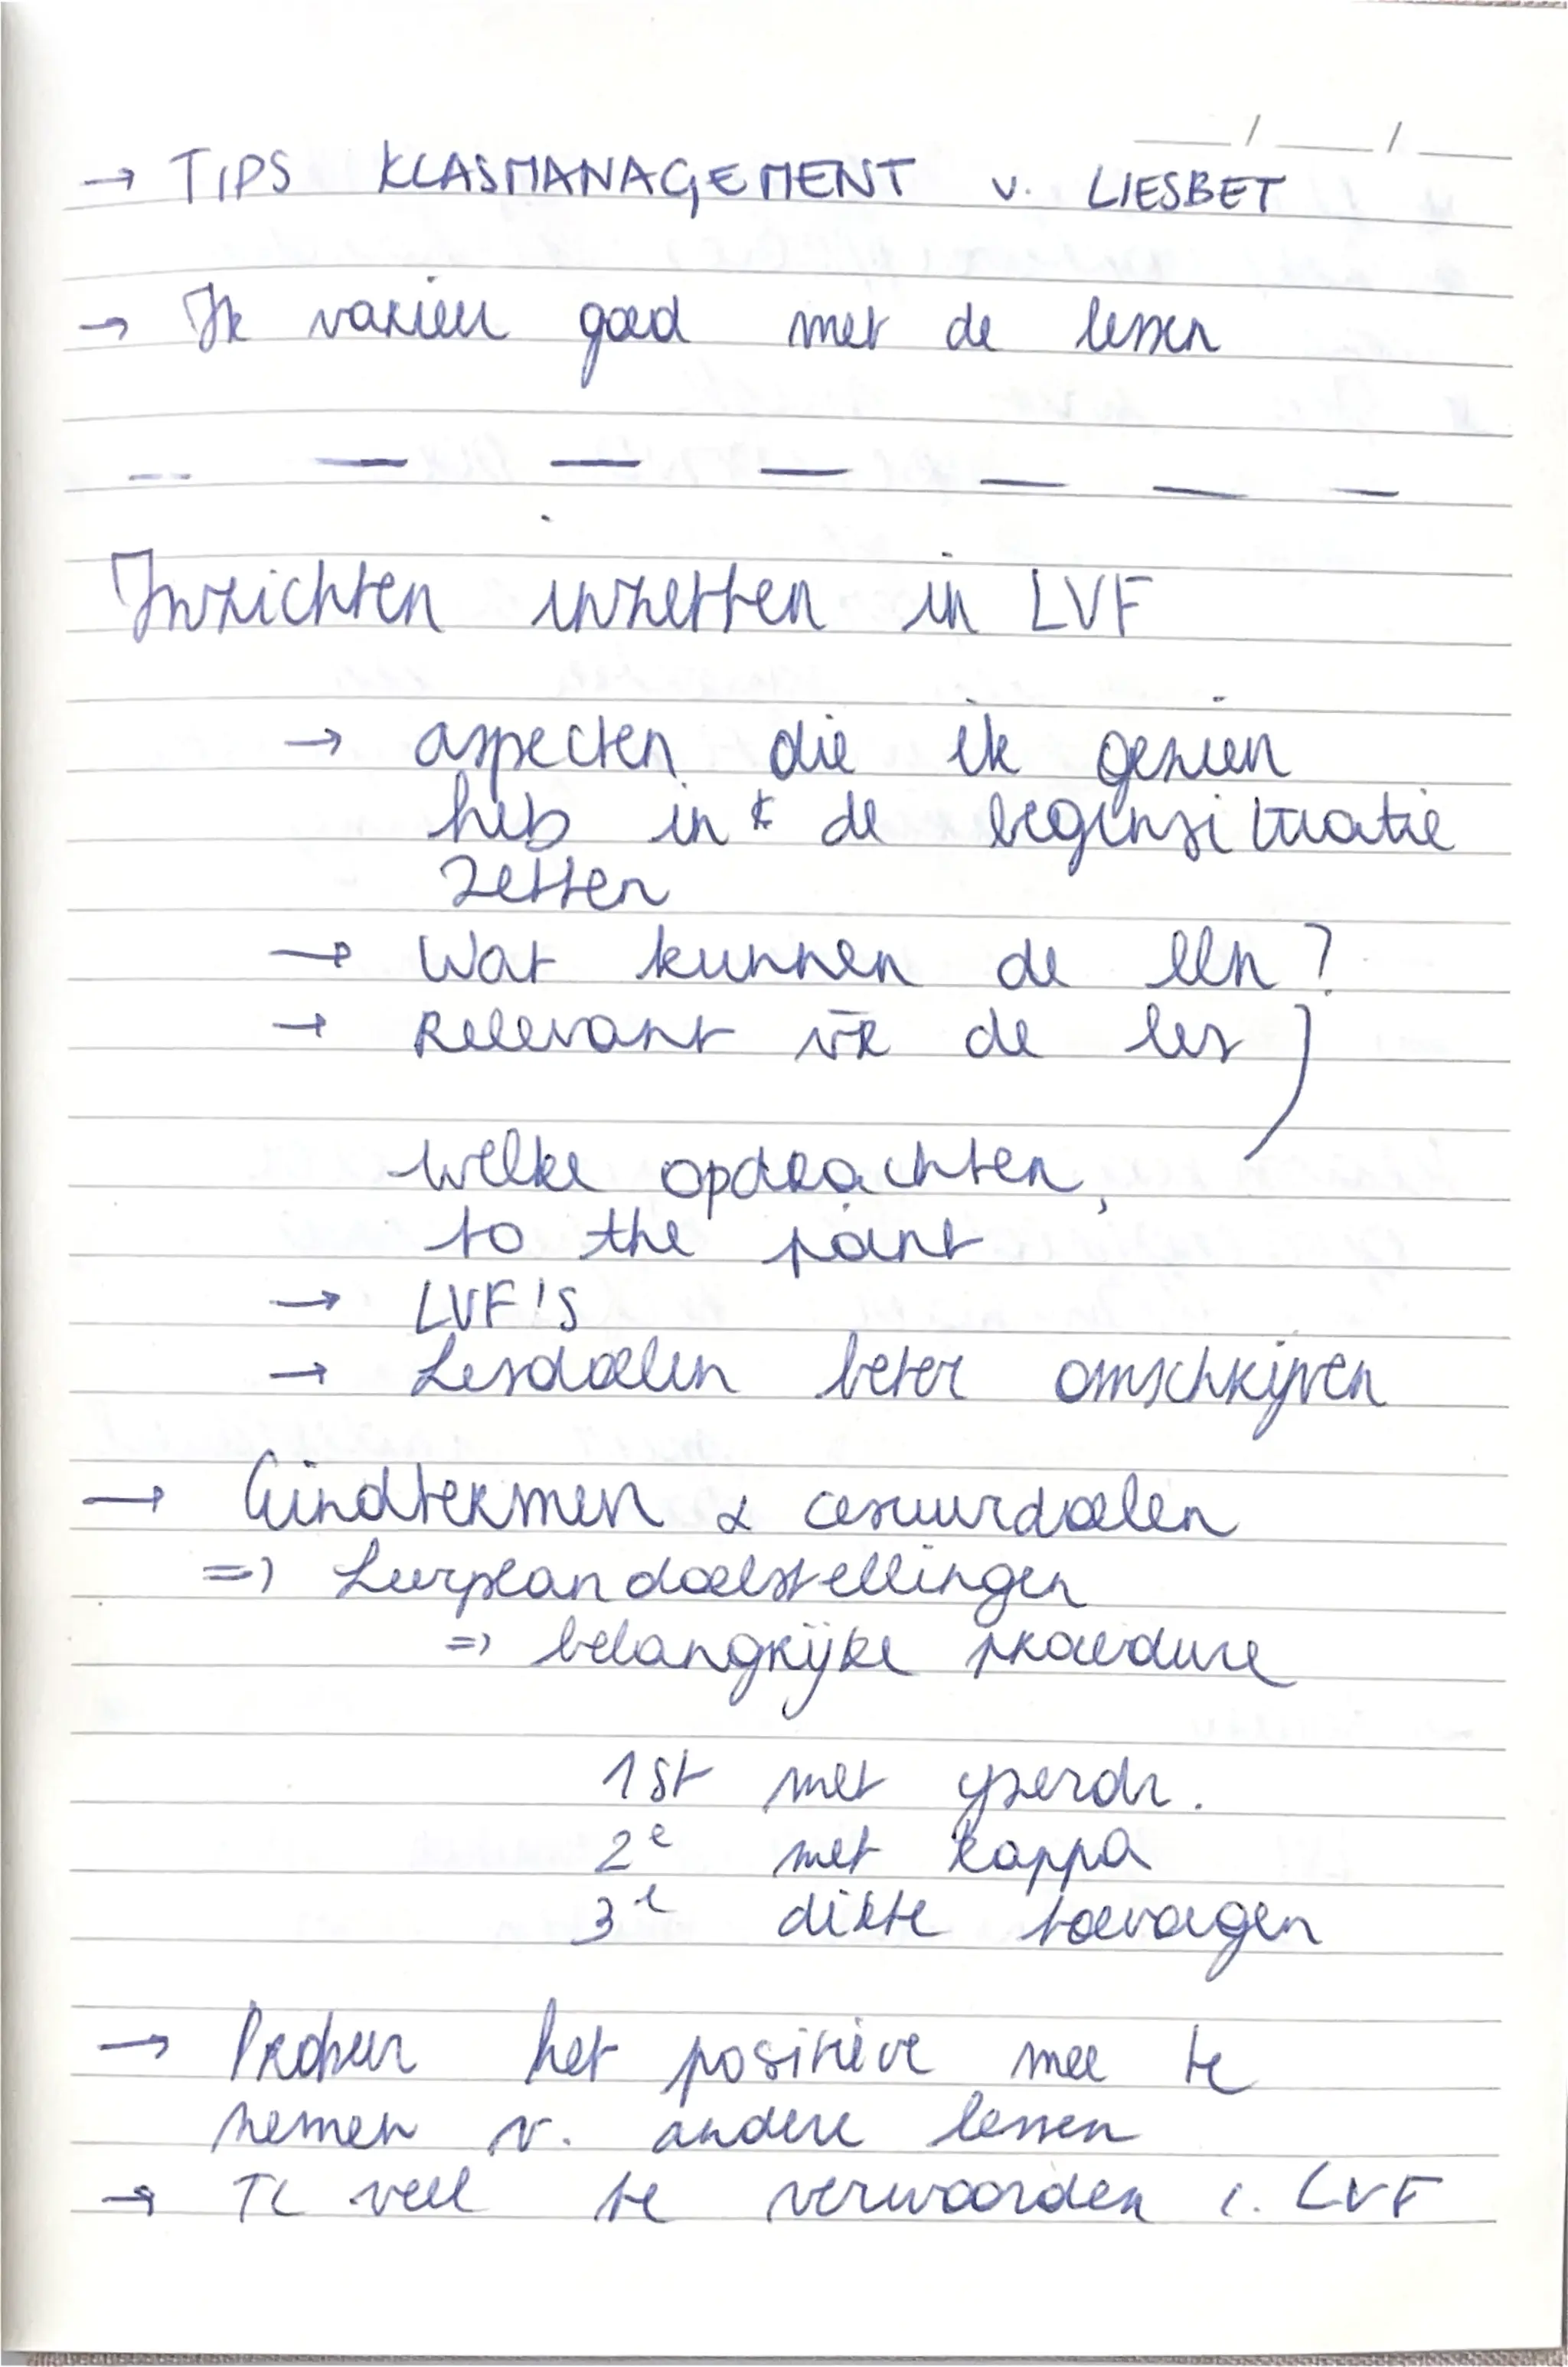 → TIPS KLASMANAGEMENT v. LIESBET
→ Ik varieer goed met de lessen
Inzichten inzetten in LVF
→ aspecten die ik gezien
heb in de beginsituatie
zetten
→ Wat kunnen de lln?
→ Relevant vr de les
welke opdrachten,
to the point
→ LVF's
→ Lesdoelen beter omschrijven
→ Eindtermen & cesuurdoelen
=> Leerplandoelstellingen
=> belangrijke procedure
1st met yzerdr.
2e met kappa
3e dikte toevoegen
→ Probeer het positieve mee te
nemen v. andere lessen
→ TC veel te verwoorden i. LVF